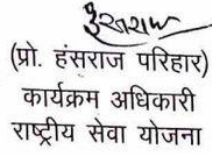 (प्रो. हंसराज परिहार)
कार्यक्रम अधिकारी
राष्ट्रीय सेवा योजना